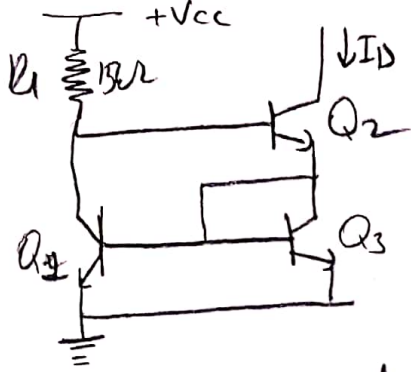 +Vcc
R1 15kΩ
↓ID
Q2
Q1
Q3